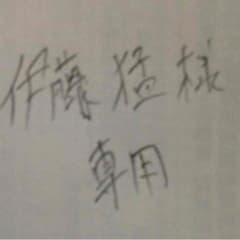 伊藤猛様
専用